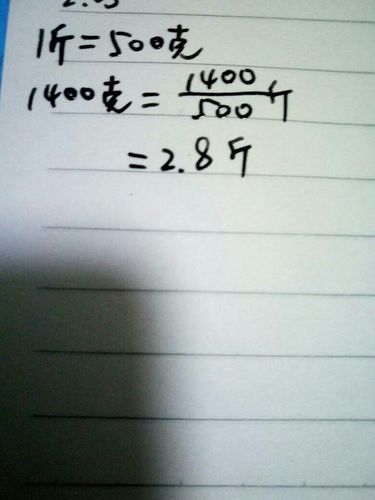 1斤=500克
1400克=1400/500斤
=2.8斤